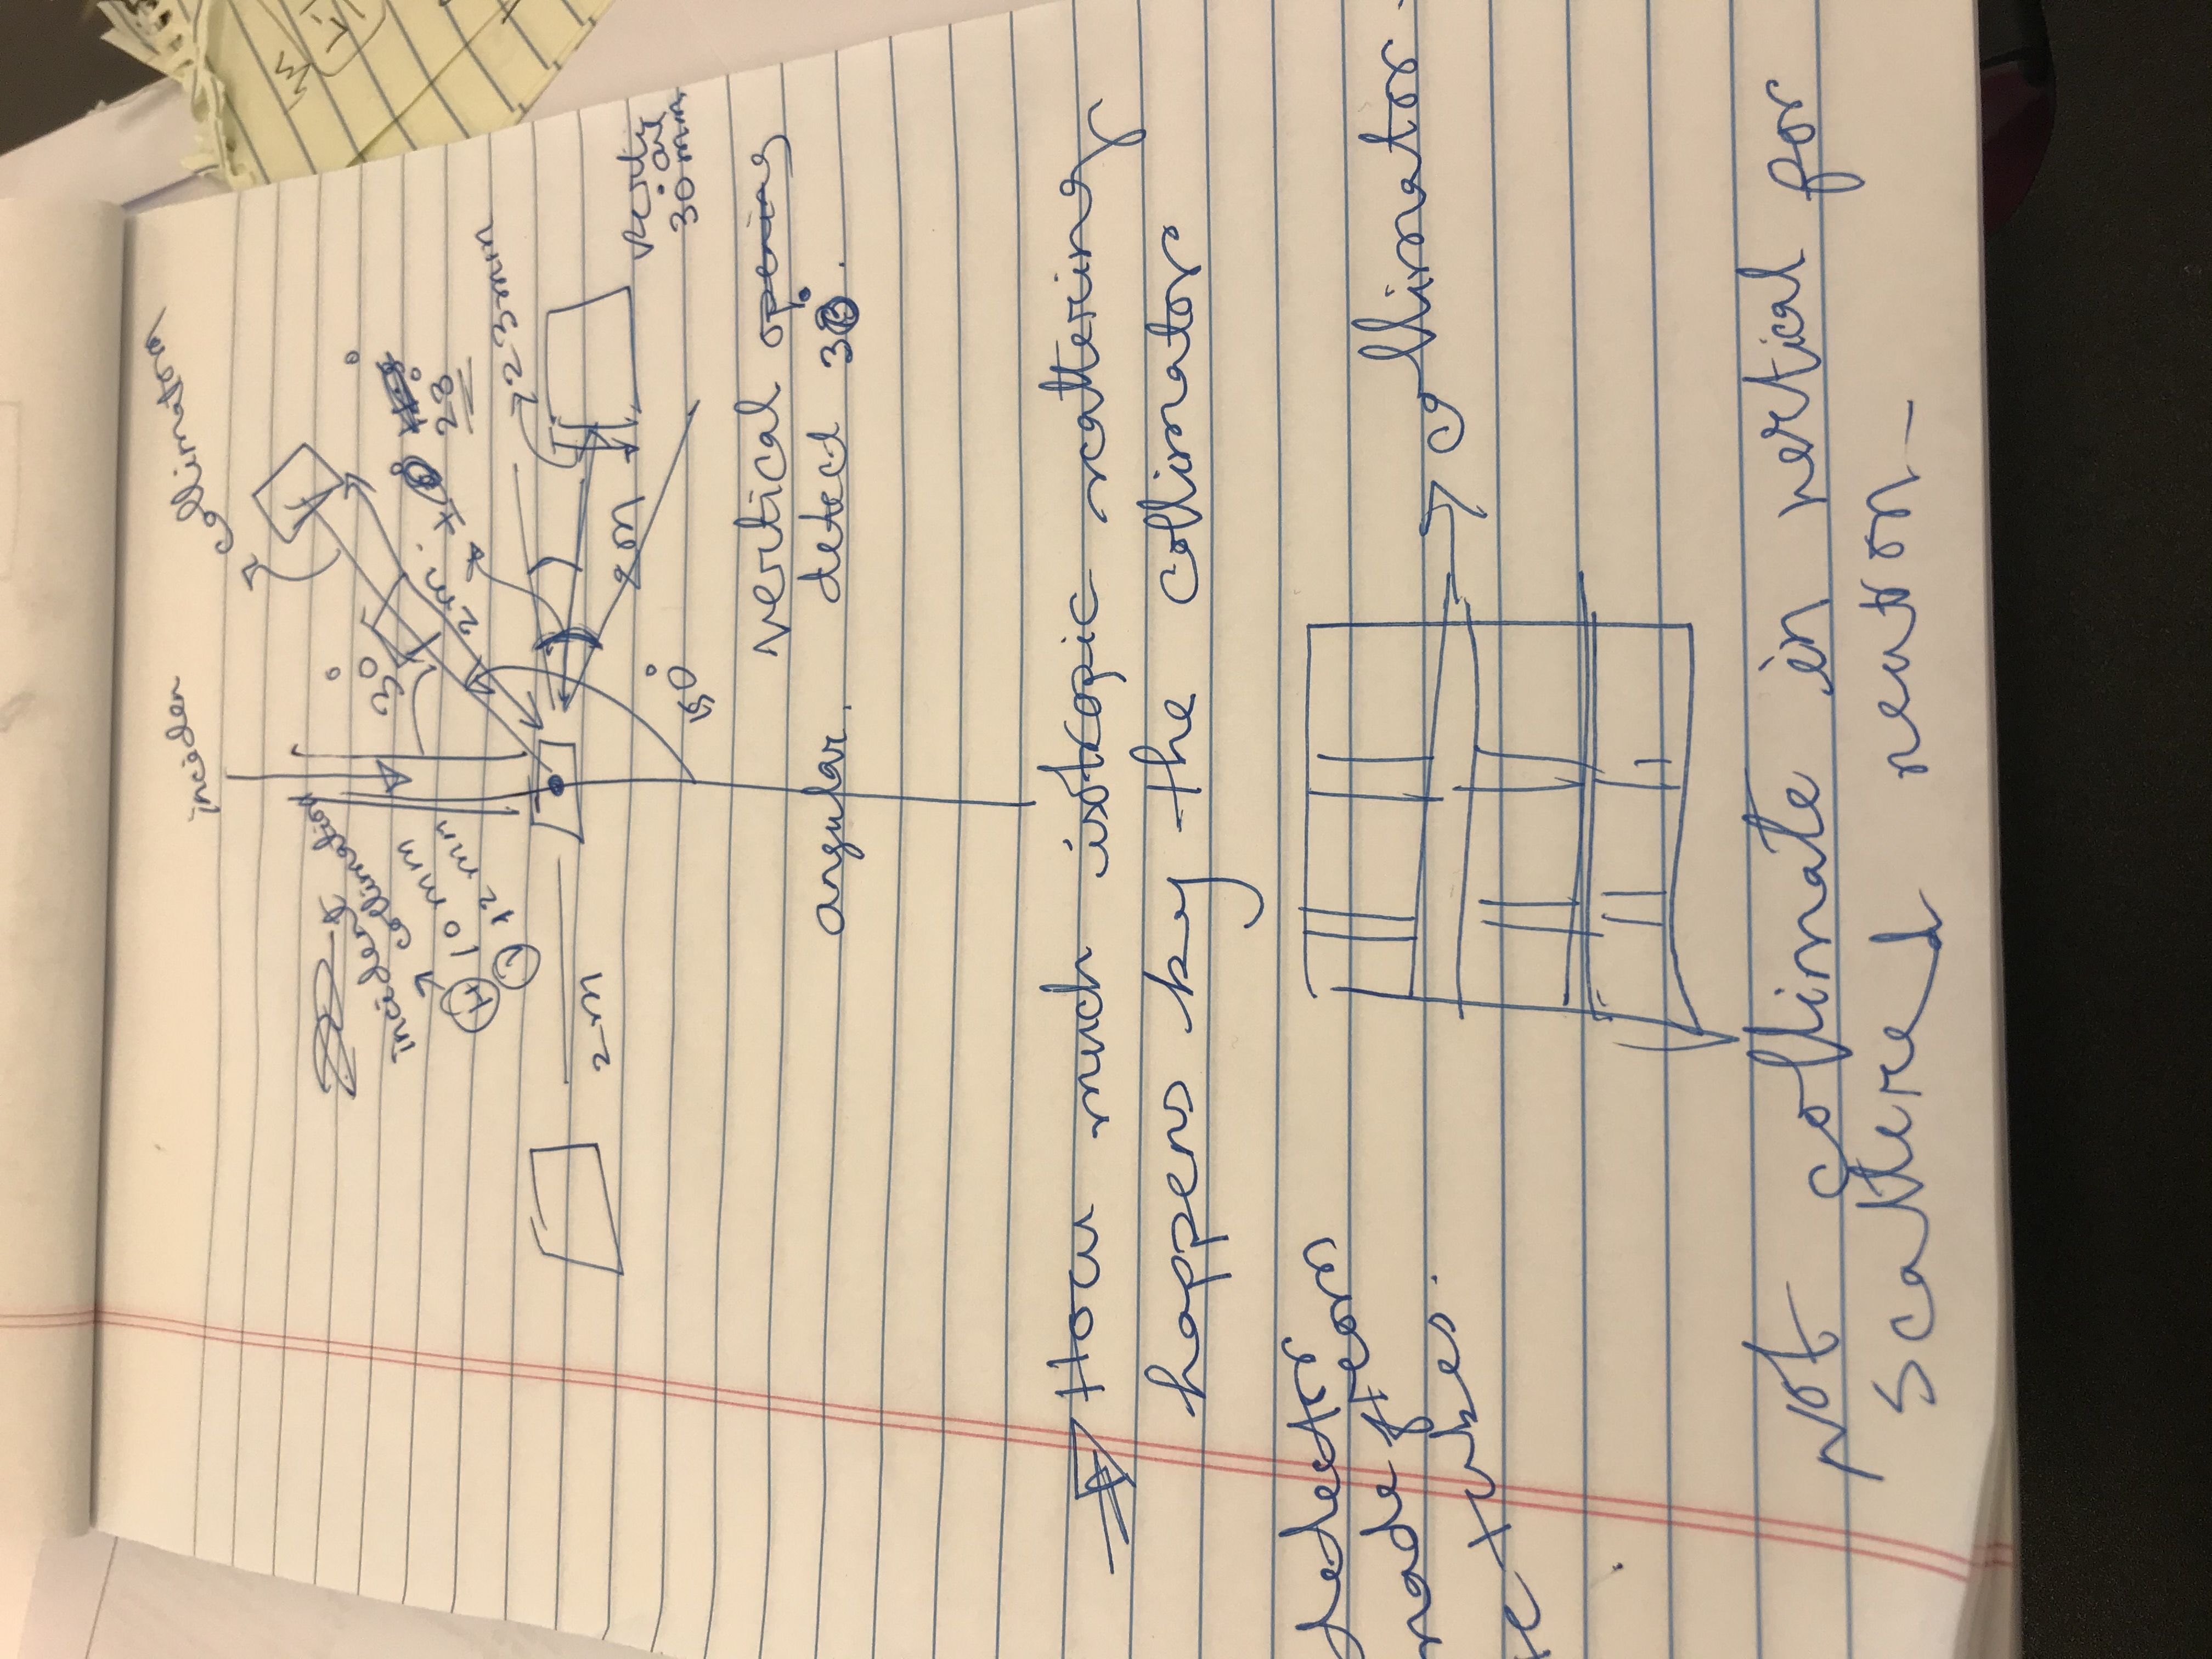 inciden
collimatorn
incident
collimation
H 10 mm
V 12 mm
30°
2m.
±
23°
23mm
2m
2m
150°
verti
30 mm
vertical opening
angular. detect 30°.
How much isotropic scattering
happens by the collimator
detector
made from
tubes.
collimator.
Not collimate in vertical for
scattered neutron